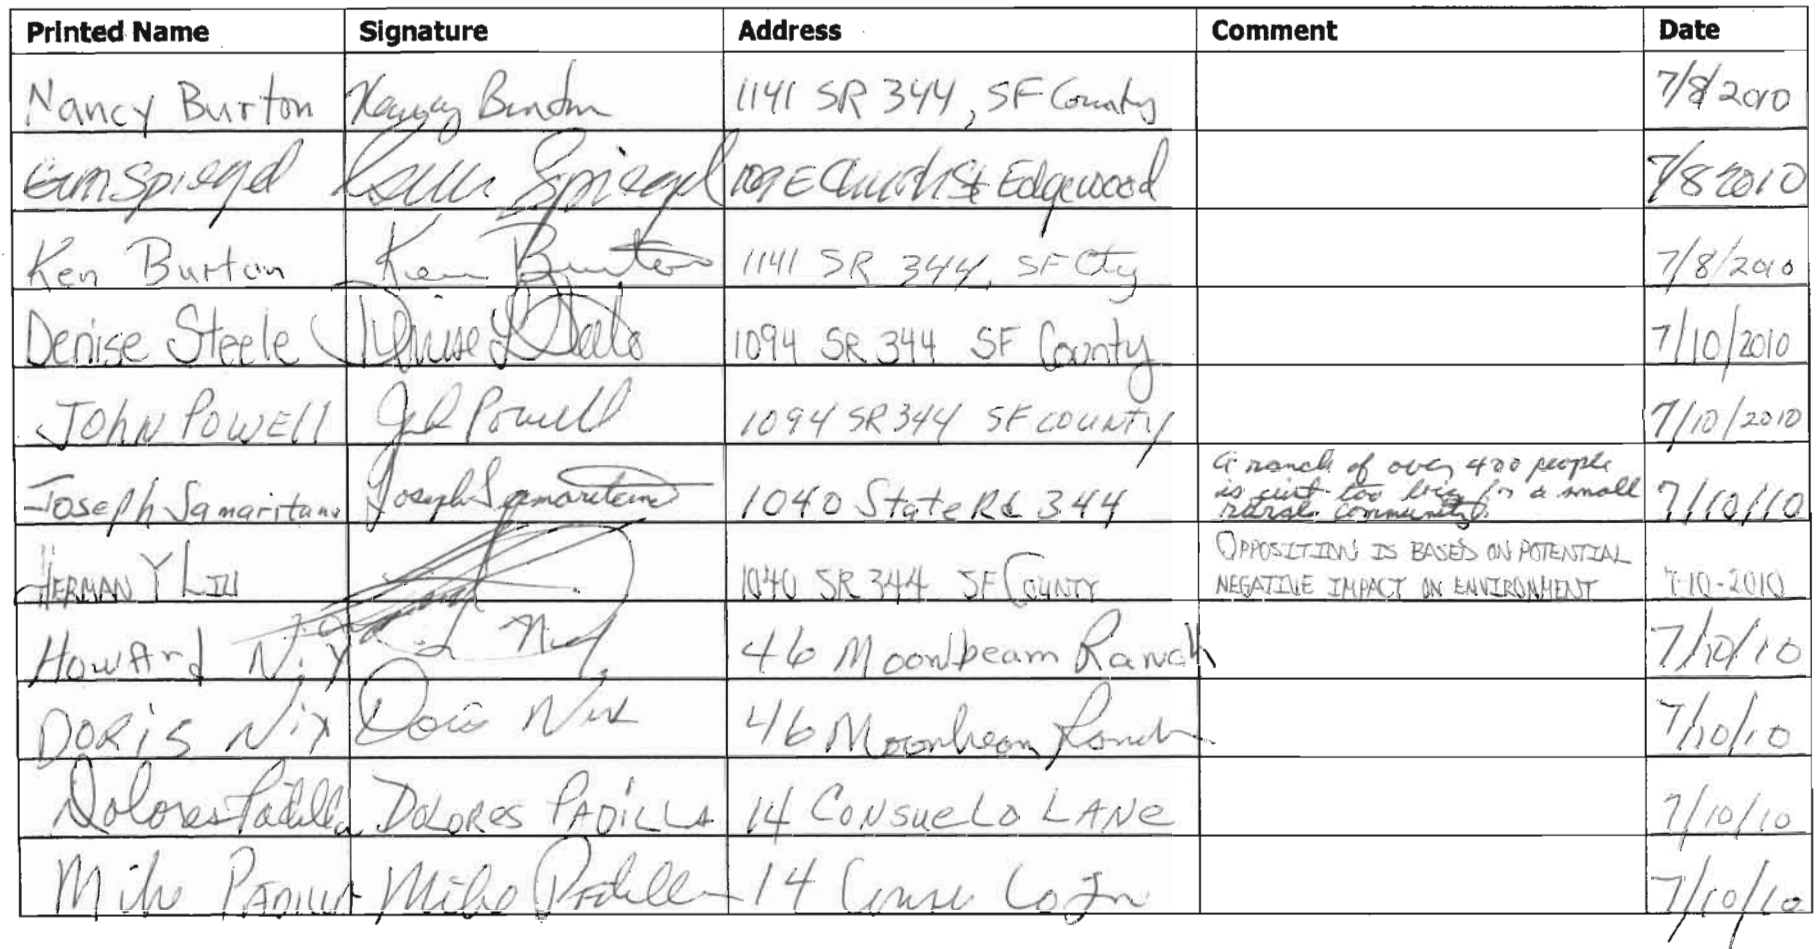 Printed Name Signature Address Comment Date
Nancy Burton Nancy Burton 1141 SR 344, SF County 7/8/2010
Spiegel Spiegel 109 E Church St Edgewood 7/8 2010
Ken Burton Ken Burton 1141 SR 344, SF Cty 7/8/2010
Denise Steele Denise 1094 SR 344 SF County 7/10/2010
JOHN POWELL Powell 1094 SR 344 SF COUNTY 7/10/2010
Joseph Samaritano Joseph Samaritano 1040 State Rd 344 a ranch of over 400 people 7/10/10
is just too big for a small
rural community.
HERMAN Y LIU 1040 SR 344 SF COUNTY OPPOSITION IS BASED ON POTENTIAL 7-10-2010
NEGATIVE IMPACT ON ENVIRONMENT
HowArd Nix 46 Moonbeam Ranch 7/10/10
DORiS Nix Doris Nix 46 Moonbeam Ranch 7/10/10
Dolores Padilla DOLORES PADILLA 14 CONSUELO LANE 7/10/10
Mike PADILLA Mike Padilla 14 Consuelo Ln 7/10/10